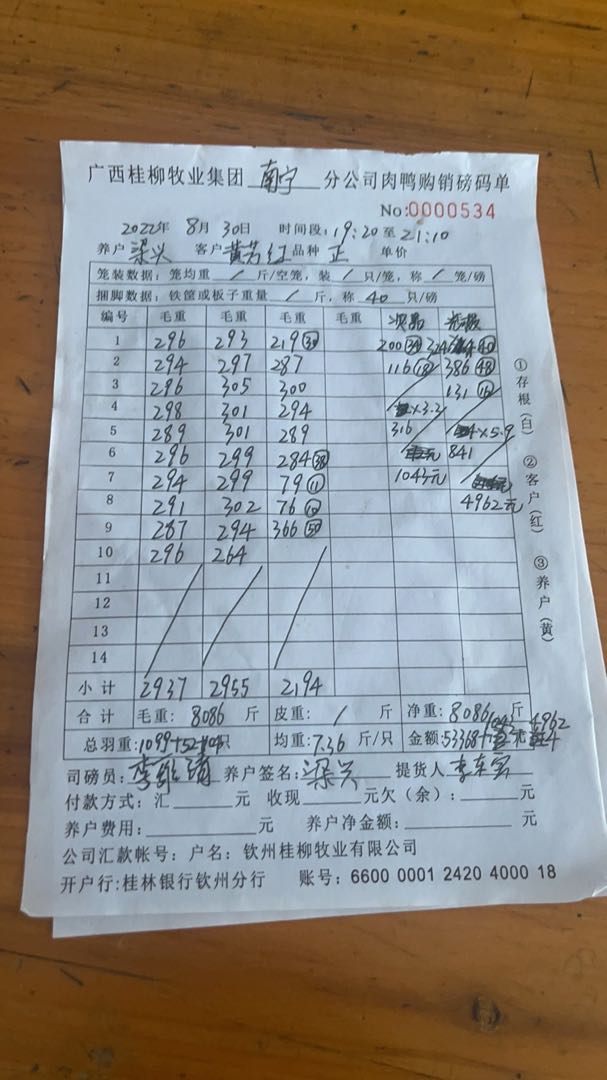 广西桂柳牧业集团 南宁 分公司肉鸭购销磅码单
No:0000534
2022年 8月 30日 时间段:19:20至21:10
养户 梁兴 客户 黄芳红 品种 正 单价
笼装数据:笼均重 / 斤/空笼,装 / 只/笼,称 / 笼/磅
捆脚数据:铁筐或板子重量 / 斤,称 40 只/磅
编号 毛重 毛重 毛重 毛重 次品
1 296 293 219 (30) 200 (34) 324 (40)
2 294 297 287 116 (18) 386 (48)
3 296 305 300 131 (16)
4 298 301 294 ×3.3
5 289 301 289 316 ×5.9
6 296 299 284 (38) 841
7 294 299 79 (11) 1043元
8 291 302 76 (10) 4962元
9 287 294 366 (50)
10 296 264
11
12
13
14
小计 2937 2955 2194
合计 毛重:8086 斤 皮重: / 斤 净重:8086 斤
总羽重:1099+52+104只 均重:7.36 斤/只 金额:53368+1043元 4962
司磅员: 养户签名:梁兴 提货人
付款方式:汇 元 收现 元欠(余): 元
养户费用: 元 养户净金额: 元
公司汇款帐号:户名:钦州桂柳牧业有限公司
开户行:桂林银行钦州分行 账号:6600 0001 2420 4000 18
①存根(白) ②客户(红) ③养户(黄)